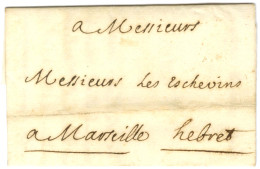 a Messieurs
Messieurs Les Eschevins
a Marseille lebret